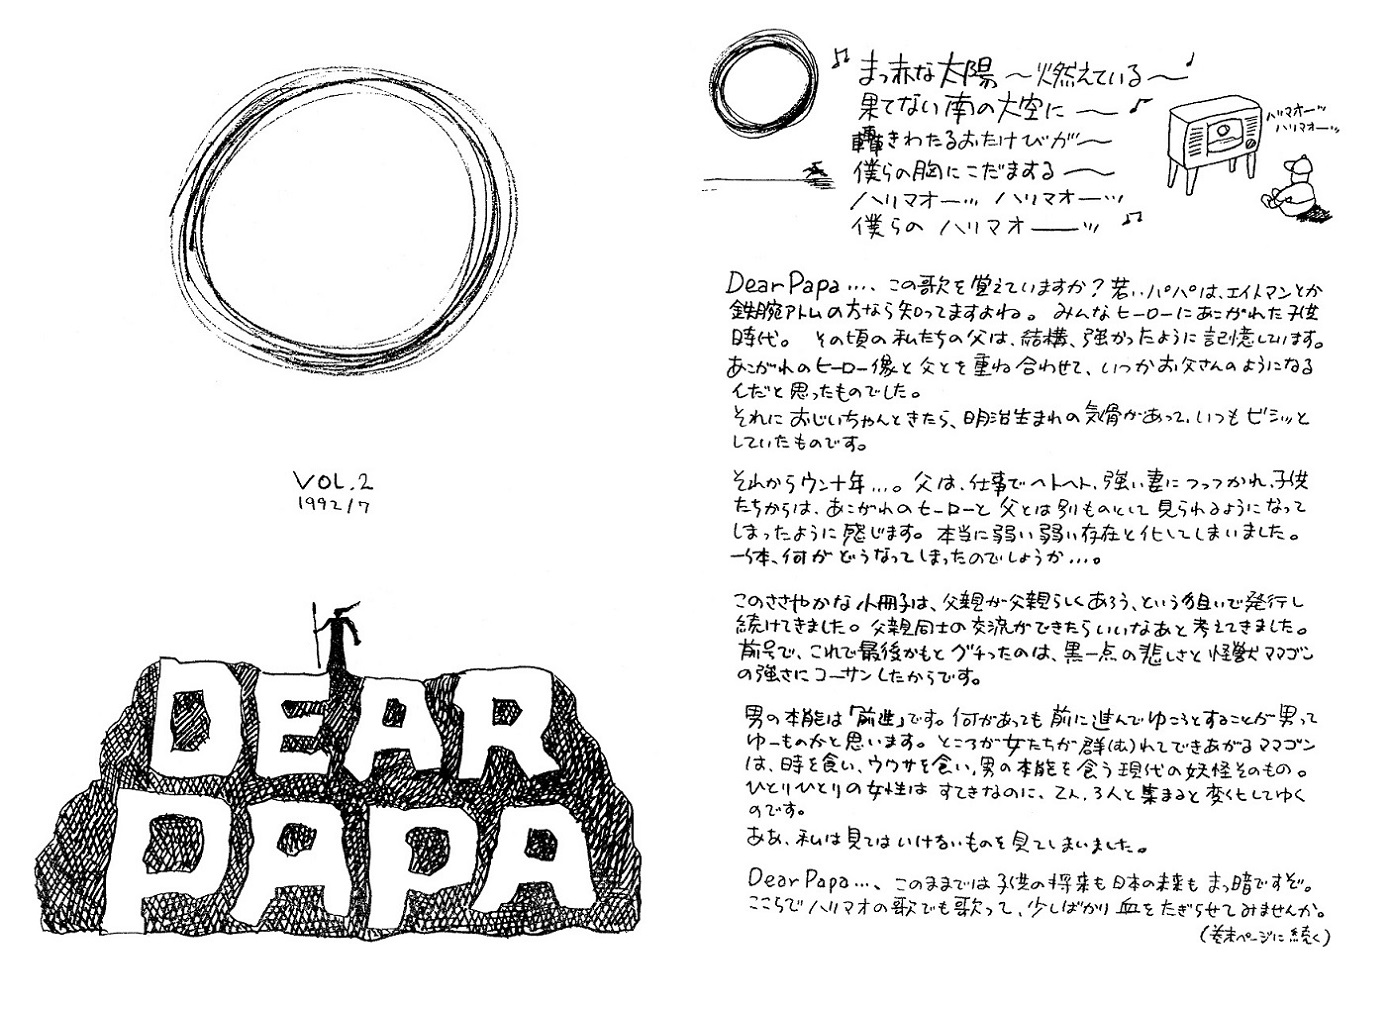 VOL.2
1992/7
DEAR
PAPA
まっ赤な太陽〜燃えている〜
果てない南の大空に〜
轟きわたるおたけびが〜
僕らの胸にこだまする〜
ハリマオーッ ハリマオーッ
僕らの ハリマオーッ
ハリマオーッ
ハリマオーッ
Dear Papa…、この歌を覚えていますか？若いパパは、エイトマンとか
鉄腕アトムの方なら知ってますよね。みんなヒーローにあこがれた子供
時代。その頃の私たちの父は、結構、強かったように記憶しています。
あこがれのヒーロー像と父とを重ね合わせて、いつかお父さんのようになる
んだと思ったものでした。
それにおじいちゃんときたら、明治生まれの気骨があって、いつもビシッと
していたものです。
それからウン十年…。父は、仕事でヘトヘト、強い妻につっつかれ、子供
たちからは、あこがれのヒーローと父とは別ものとして見られるようになって
しまったように感じます。本当に弱い弱い存在と化してしまいました。
一体、何がどうなってしまったのでしょうか…。
このささやかな小冊子は、父親が父親らしくあろう、という狙いで発行し
続けてきました。父親同士の交流ができたらいいなあと考えてきました。
前号で、これで最後かもとグチったのは、黒一点の悲しさと怪獣ママゴン
の強さにコーサンしたからです。
男の本能は「前進」です。何があっても前に進んでゆこうとすることが男って
ゆーものかと思います。ところが女たちが群(む)れてできあがるママゴン
は、時を食い、ウワサを食い、男の本能を食う現代の妖怪そのもの。
ひとりひとりの女性はすてきなのに、2人、3人と集まると変化してゆく
のです。
ああ、私は見てはいけないものを見てしまいました。
Dear Papa…、このままでは子供の将来も日本の未来もまっ暗ですぞ。
ここらでハリマオの歌でも歌って、少しばかり血をたぎらせてみませんか。
(巻末ページに続く)